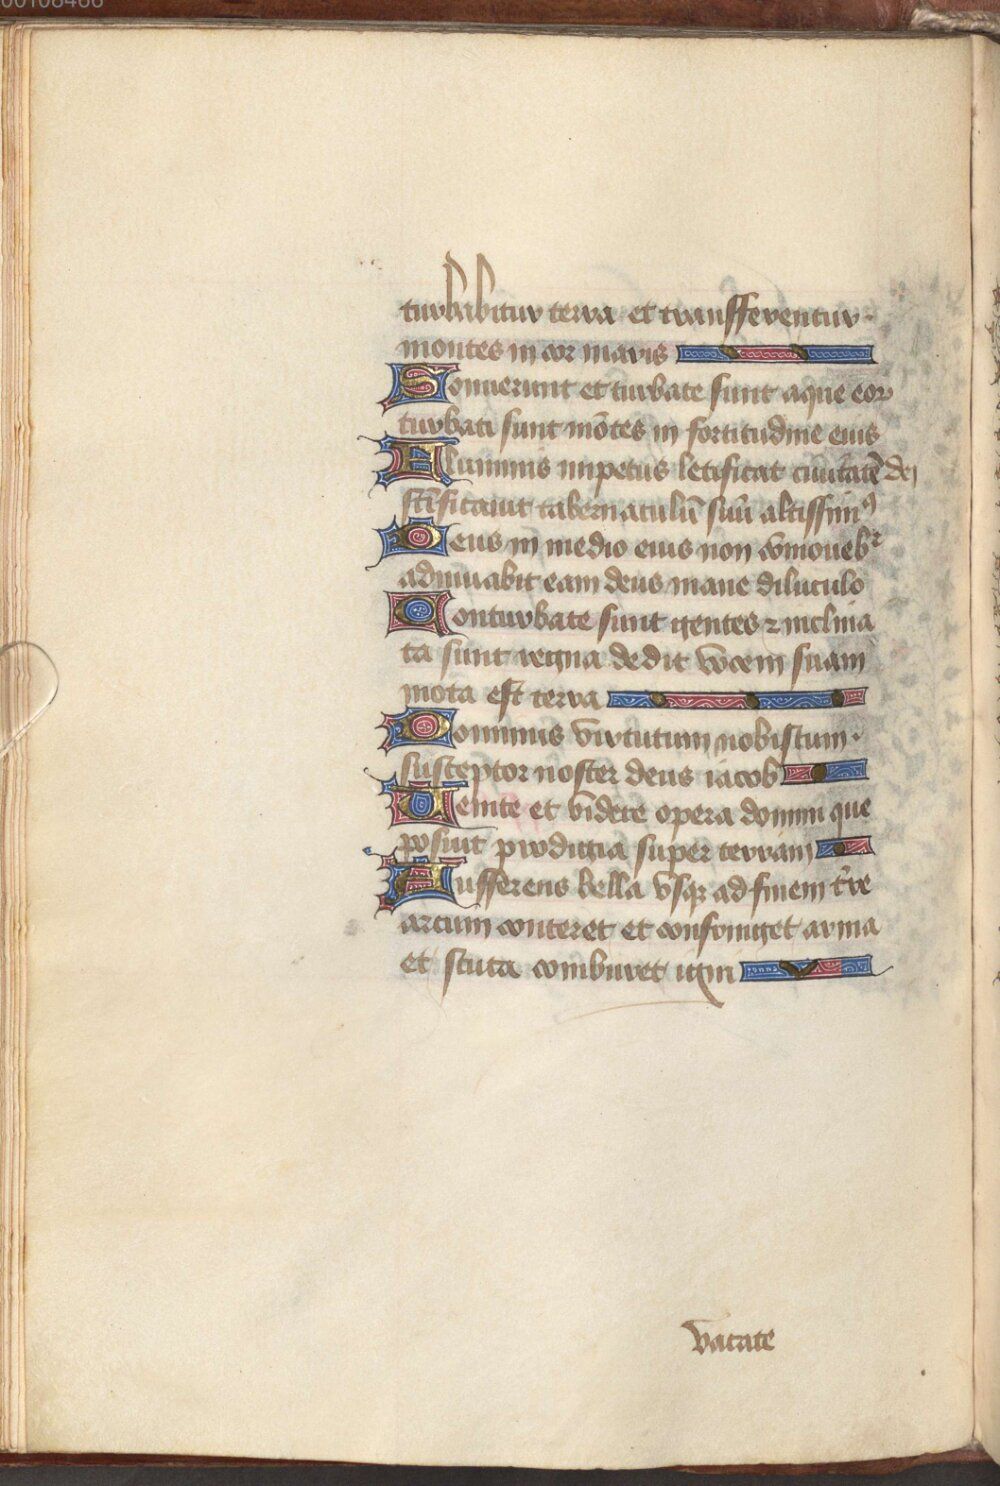 00108466
turbabitur terra et transfferentur
montes in cor maris
Sonuerunt et turbate sunt aque eor
turbati sunt mōtes in fortitudine eius
Fluminis impetus letificat ciuitatē dei
sc̄ificauit tabernaculū suū altissimꝰ
Deus in medio eius non cōmouebr
adiuuabit eam deus mane diluculo
Conturbate sunt gentes ⁊ inclina
ta sunt regna dedit vocem suam
mota est terra
Dominus virtutum nobiscum
susceptor noster deus iacob
Uenite et videte opera domini que
posuit prodigia super terram
Aufferens bella vsqꝫ ad finem t̄re
arcum conteret et confringet arma
et scuta comburet igni
vacate